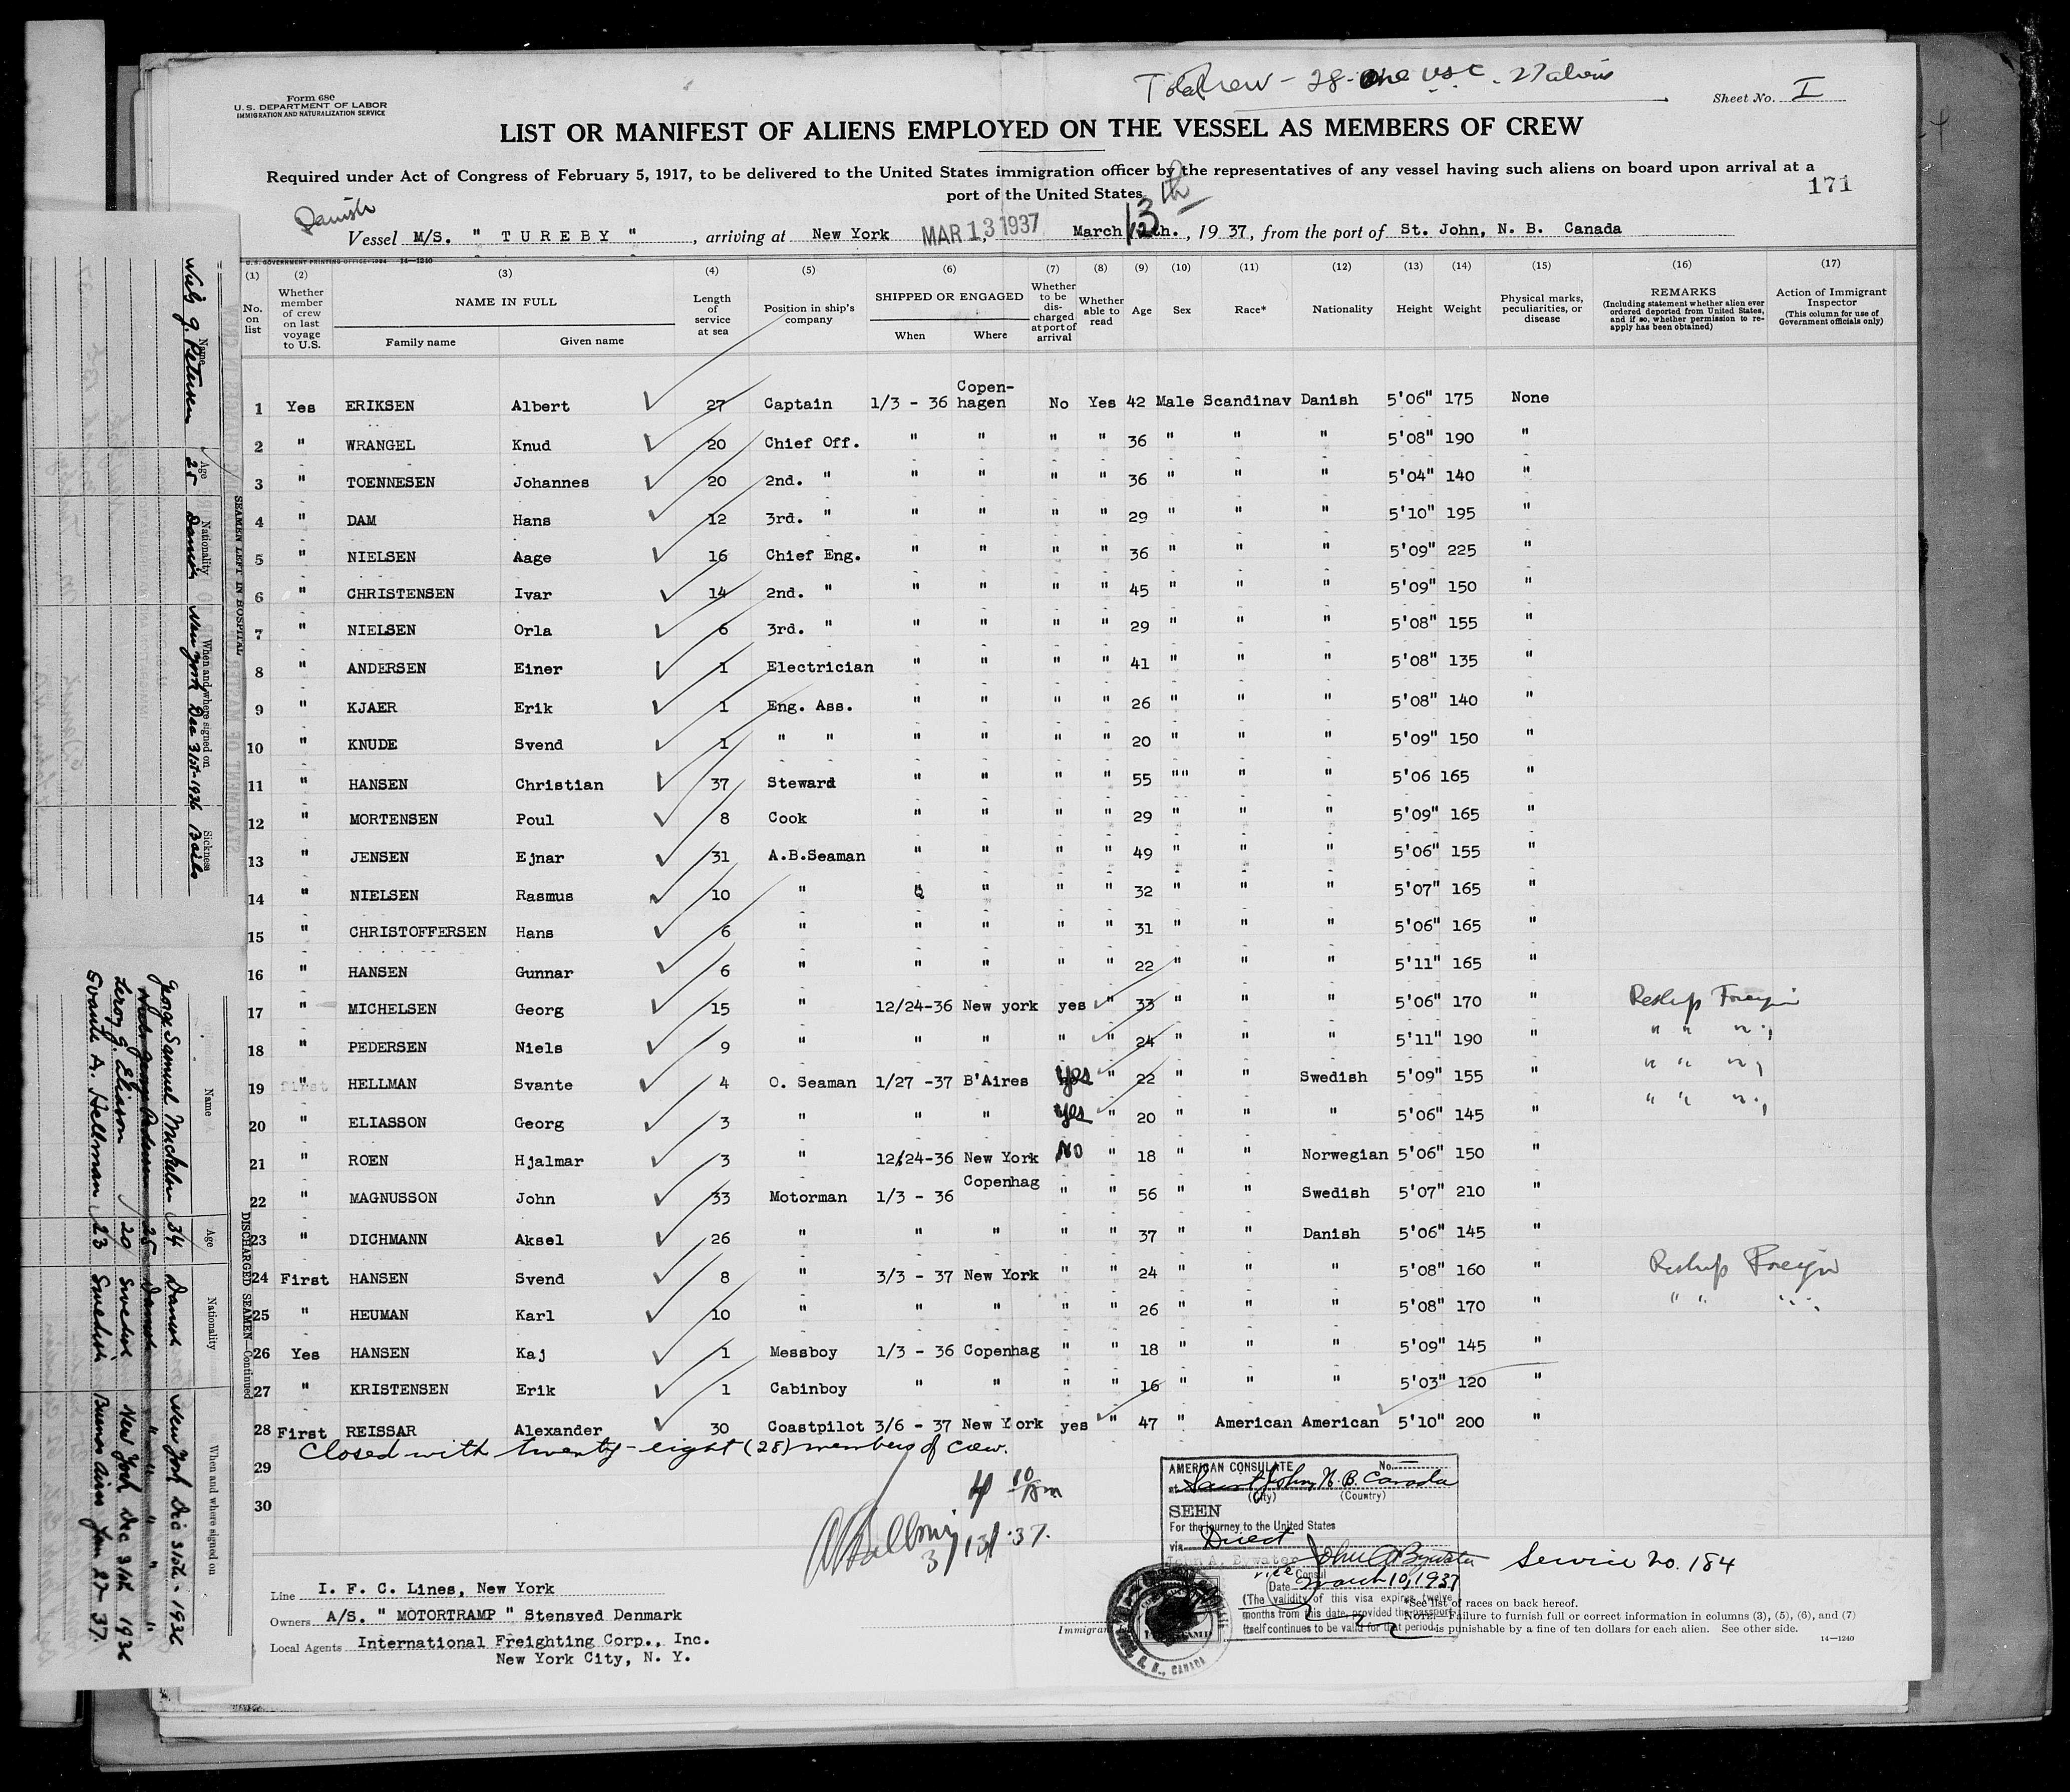 Total Crew - 28 - One USC. - 27 aliens
Form 680
U. S. DEPARTMENT OF LABOR
IMMIGRATION AND NATURALIZATION SERVICE
Sheet No. I
LIST OR MANIFEST OF ALIENS EMPLOYED ON THE VESSEL AS MEMBERS OF CREW
Required under Act of Congress of February 5, 1917, to be delivered to the United States immigration officer by the representatives of any vessel having such aliens on board upon arrival at a
port of the United States
171
Danish
13th
Vessel M/S. " TUREBY " , arriving at New York MAR 13 1937, March 12th. , 19 37, from the port of St. John, N. B. Canada
U. S. GOVERNMENT PRINTING OFFICE: 1934 14—1240
(1) (2) (3) (4) (5) (6) (7) (8) (9) (10) (11) (12) (13) (14) (15) (16) (17)
No. on list
Whether member of crew on last voyage to U.S.
NAME IN FULL
Family name Given name
Length of service at sea
Position in ship's company
SHIPPED OR ENGAGED
When Where
Whether to be discharged at port of arrival
Whether able to read
Age
Sex
Race*
Nationality
Height
Weight
Physical marks, peculiarities, or disease
REMARKS
(Including statement whether alien ever ordered deported from United States, and if so, whether permission to reapply has been obtained)
Action of Immigrant Inspector
(This column for use of Government officials only)
1 Yes ERIKSEN Albert 27 Captain 1/3 - 36 Copen-hagen No Yes 42 Male Scandinav Danish 5'06" 175 None
2 " WRANGEL Knud 20 Chief Off. " " " " 36 " " " 5'08" 190 "
3 " TOENNESEN Johannes 20 2nd. " " " " " 36 " " " 5'04" 140 "
4 " DAM Hans 12 3rd. " " " " " 29 " " " 5'10" 195 "
5 " NIELSEN Aage 16 Chief Eng. " " " " 36 " " " 5'09" 225 "
6 " CHRISTENSEN Ivar 14 2nd. " " " " " 45 " " " 5'09" 150 "
7 " NIELSEN Orla 6 3rd. " " " " " 29 " " " 5'08" 155 "
8 " ANDERSEN Einer 1 Electrician " " " " 41 " " " 5'08" 135 "
9 " KJAER Erik 1 Eng. Ass. " " " " 26 " " " 5'08" 140 "
10 " KNUDE Svend 1 " " " " " " 20 " " " 5'09" 150 "
11 " HANSEN Christian 37 Steward " " " " 55 "" " " 5'06 165 "
12 " MORTENSEN Poul 8 Cook " " " " 29 " " " 5'09" 165 "
13 " JENSEN Ejnar 31 A.B.Seaman " " " " 49 " " " 5'06" 155 "
14 " NIELSEN Rasmus 10 " " " " " 32 " " " 5'07" 165 "
15 " CHRISTOFFERSEN Hans 6 " " " " " 31 " " " 5'06" 165 "
16 " HANSEN Gunnar 6 " " " " " 22 " " " 5'11" 165 "
17 " MICHELSEN Georg 15 " 12/24-36 New york yes " 33 " " " 5'06" 170 " Reship Foreign
18 " PEDERSEN Niels 9 " " " " " 24 " " " 5'11" 190 " " " " "
19 " HELLMAN Svante 4 O. Seaman 1/27 -37 B'Aires yes " 22 " " Swedish 5'09" 155 " " " " "
20 " ELIASSON Georg 3 " " " yes " 20 " " " 5'06" 145 " " " " "
21 " ROEN Hjalmar 3 " 12/24-36 New York No " 18 " " Norwegian 5'06" 150 "
22 " MAGNUSSON John 33 Motorman 1/3 - 36 Copenhag " " 56 " " Swedish 5'07" 210 "
23 " DICHMANN Aksel 26 " " " " " 37 " " Danish 5'06" 145 "
24 First HANSEN Svend 8 " 3/3 - 37 New York " " 24 " " " 5'08" 160 " Reship Foreign
25 " HEUMAN Karl 10 " " " " " 26 " " " 5'08" 170 " " " " "
26 Yes HANSEN Kaj 1 Messboy 1/3 - 36 Copenhag " " 18 " " " 5'09" 145 "
27 " KRISTENSEN Erik 1 Cabinboy " " " " 16 " " " 5'03" 120 "
28 First REISSAR Alexander 30 Coastpilot 3/6 - 37 New York yes " 47 " American American 5'10" 200 "
Closed with twenty-eight (28) members of crew.
29
30
3/13/37.
AMERICAN CONSULATE No.
at Saint John, N. B. Canada
(City) (Country)
SEEN
For the journey to the United States
via Direct
John A. Bywater John A Bywater
vice Consul
Date March 10, 1937
(The validity of this visa expires twelve
months from this date, provided the passport
itself continues to be valid for that period.
Service No. 184
Line I. F. C. Lines, New York
Owners A/S. " MOTORTRAMP " Stensved Denmark
Local Agents International Freighting Corp., Inc.
New York City, N. Y.
Immigran
*See list of races on back hereof.
NOTE.—Failure to furnish full or correct information in columns (3), (5), (6), and (7)
is punishable by a fine of ten dollars for each alien. See other side.
14—1240
SEAMEN LEFT IN HOSPITAL
Name Age Nationality When and where signed on Sickness
Niels G. Petersen 25 Danish New York Dec 31st-1936 Boils
DISCHARGED SEAMEN—Continued
Name Age Nationality When and where signed on
George Samuel Michelsen 34 Danish New York Dec 31st - 1936
25 Danish " " " "
Leroy G. Eliasson 20 Swedish New York Dec 31st 1936
Svante A. Hellman 23 Swedish Buenos Aires Jan 27-37.